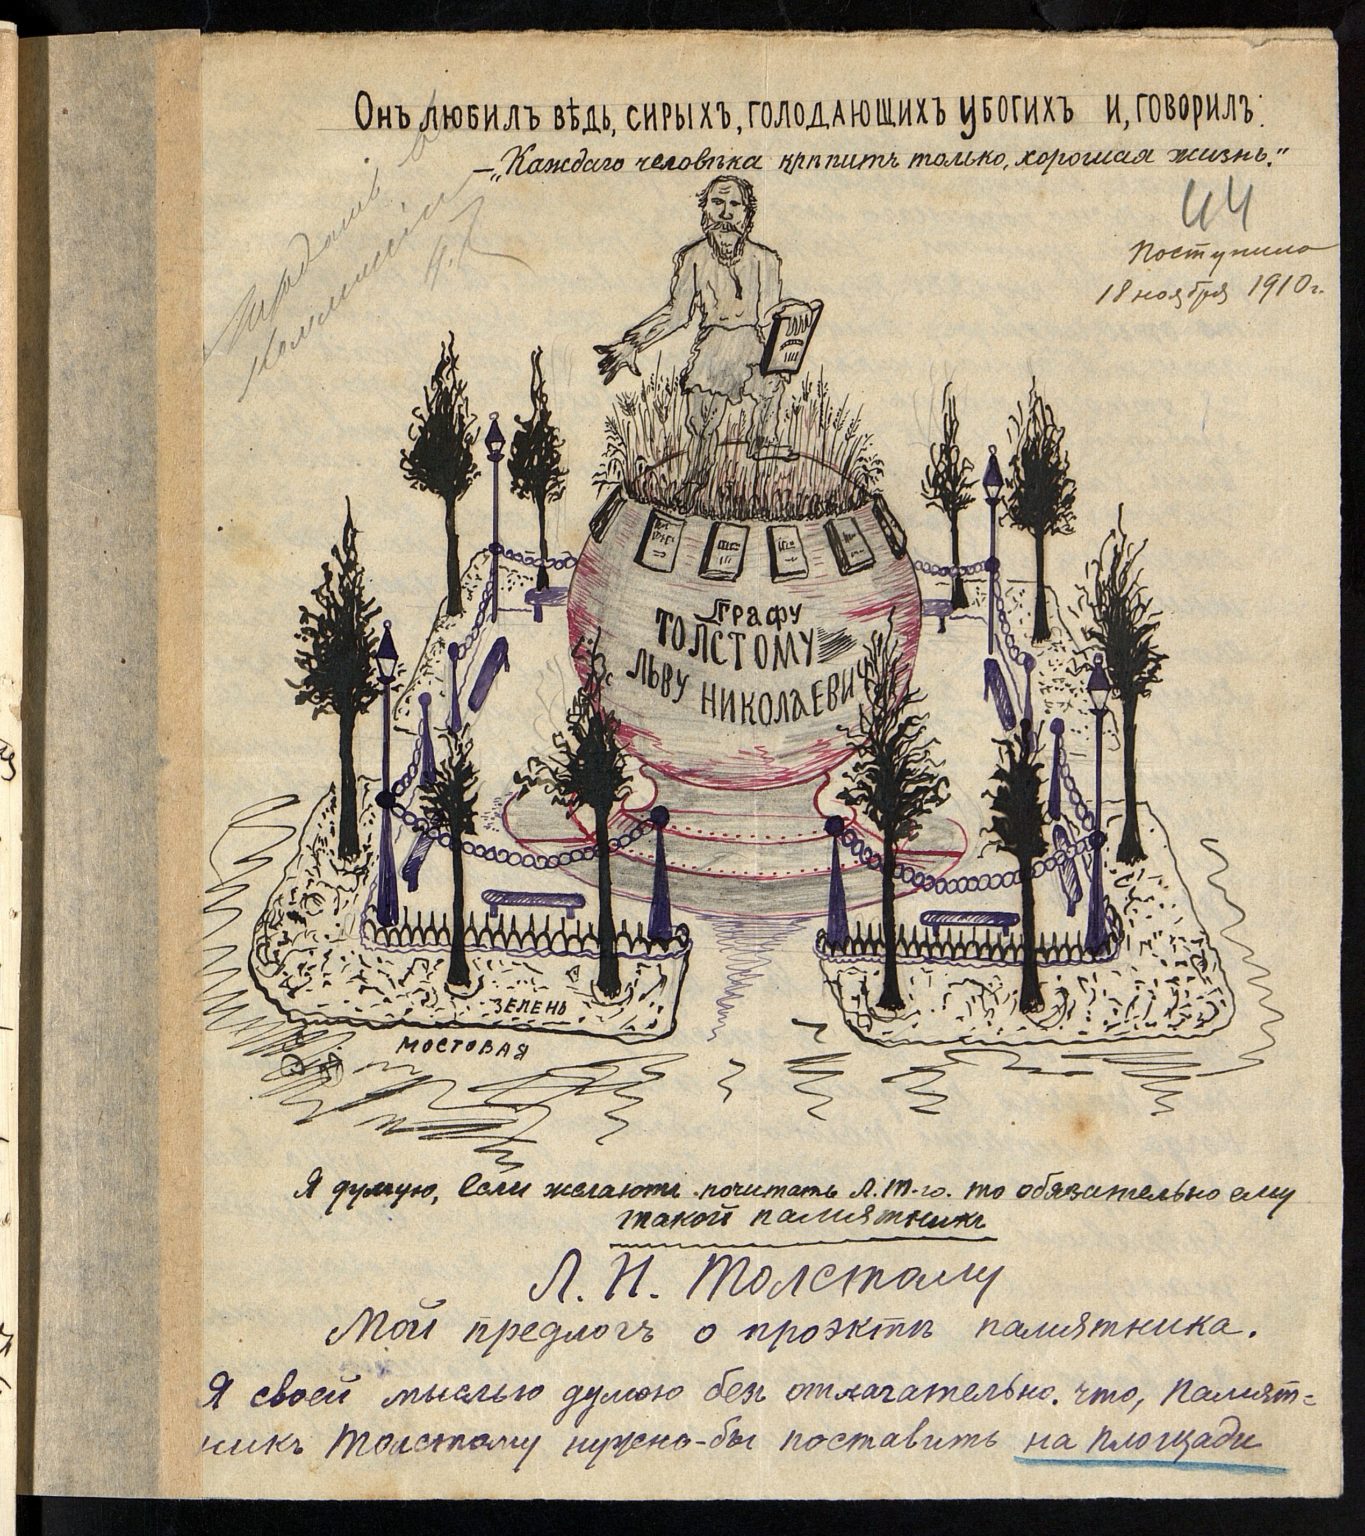 Онъ любилъ вѣдь, сирыхъ, голодающихъ убогихъ и, говорилъ:
— „Каждаго человѣка крѣпитъ только, хорошая жизнь."
44
Поступило
18 ноября 1910 г.
Графу
Толстому
Льву Николаевич
зелень
мостовая
Я думаю, если желаютъ почитать Л. Т-го. то обязательно ему
такой памятникъ
Л. Н. Толстому
Мой предлогъ о проэктѣ памятника.
Я своей мыслью думаю безъ отлагательно. что, Памят=
никъ Толстому нужно-бы поставить на площади